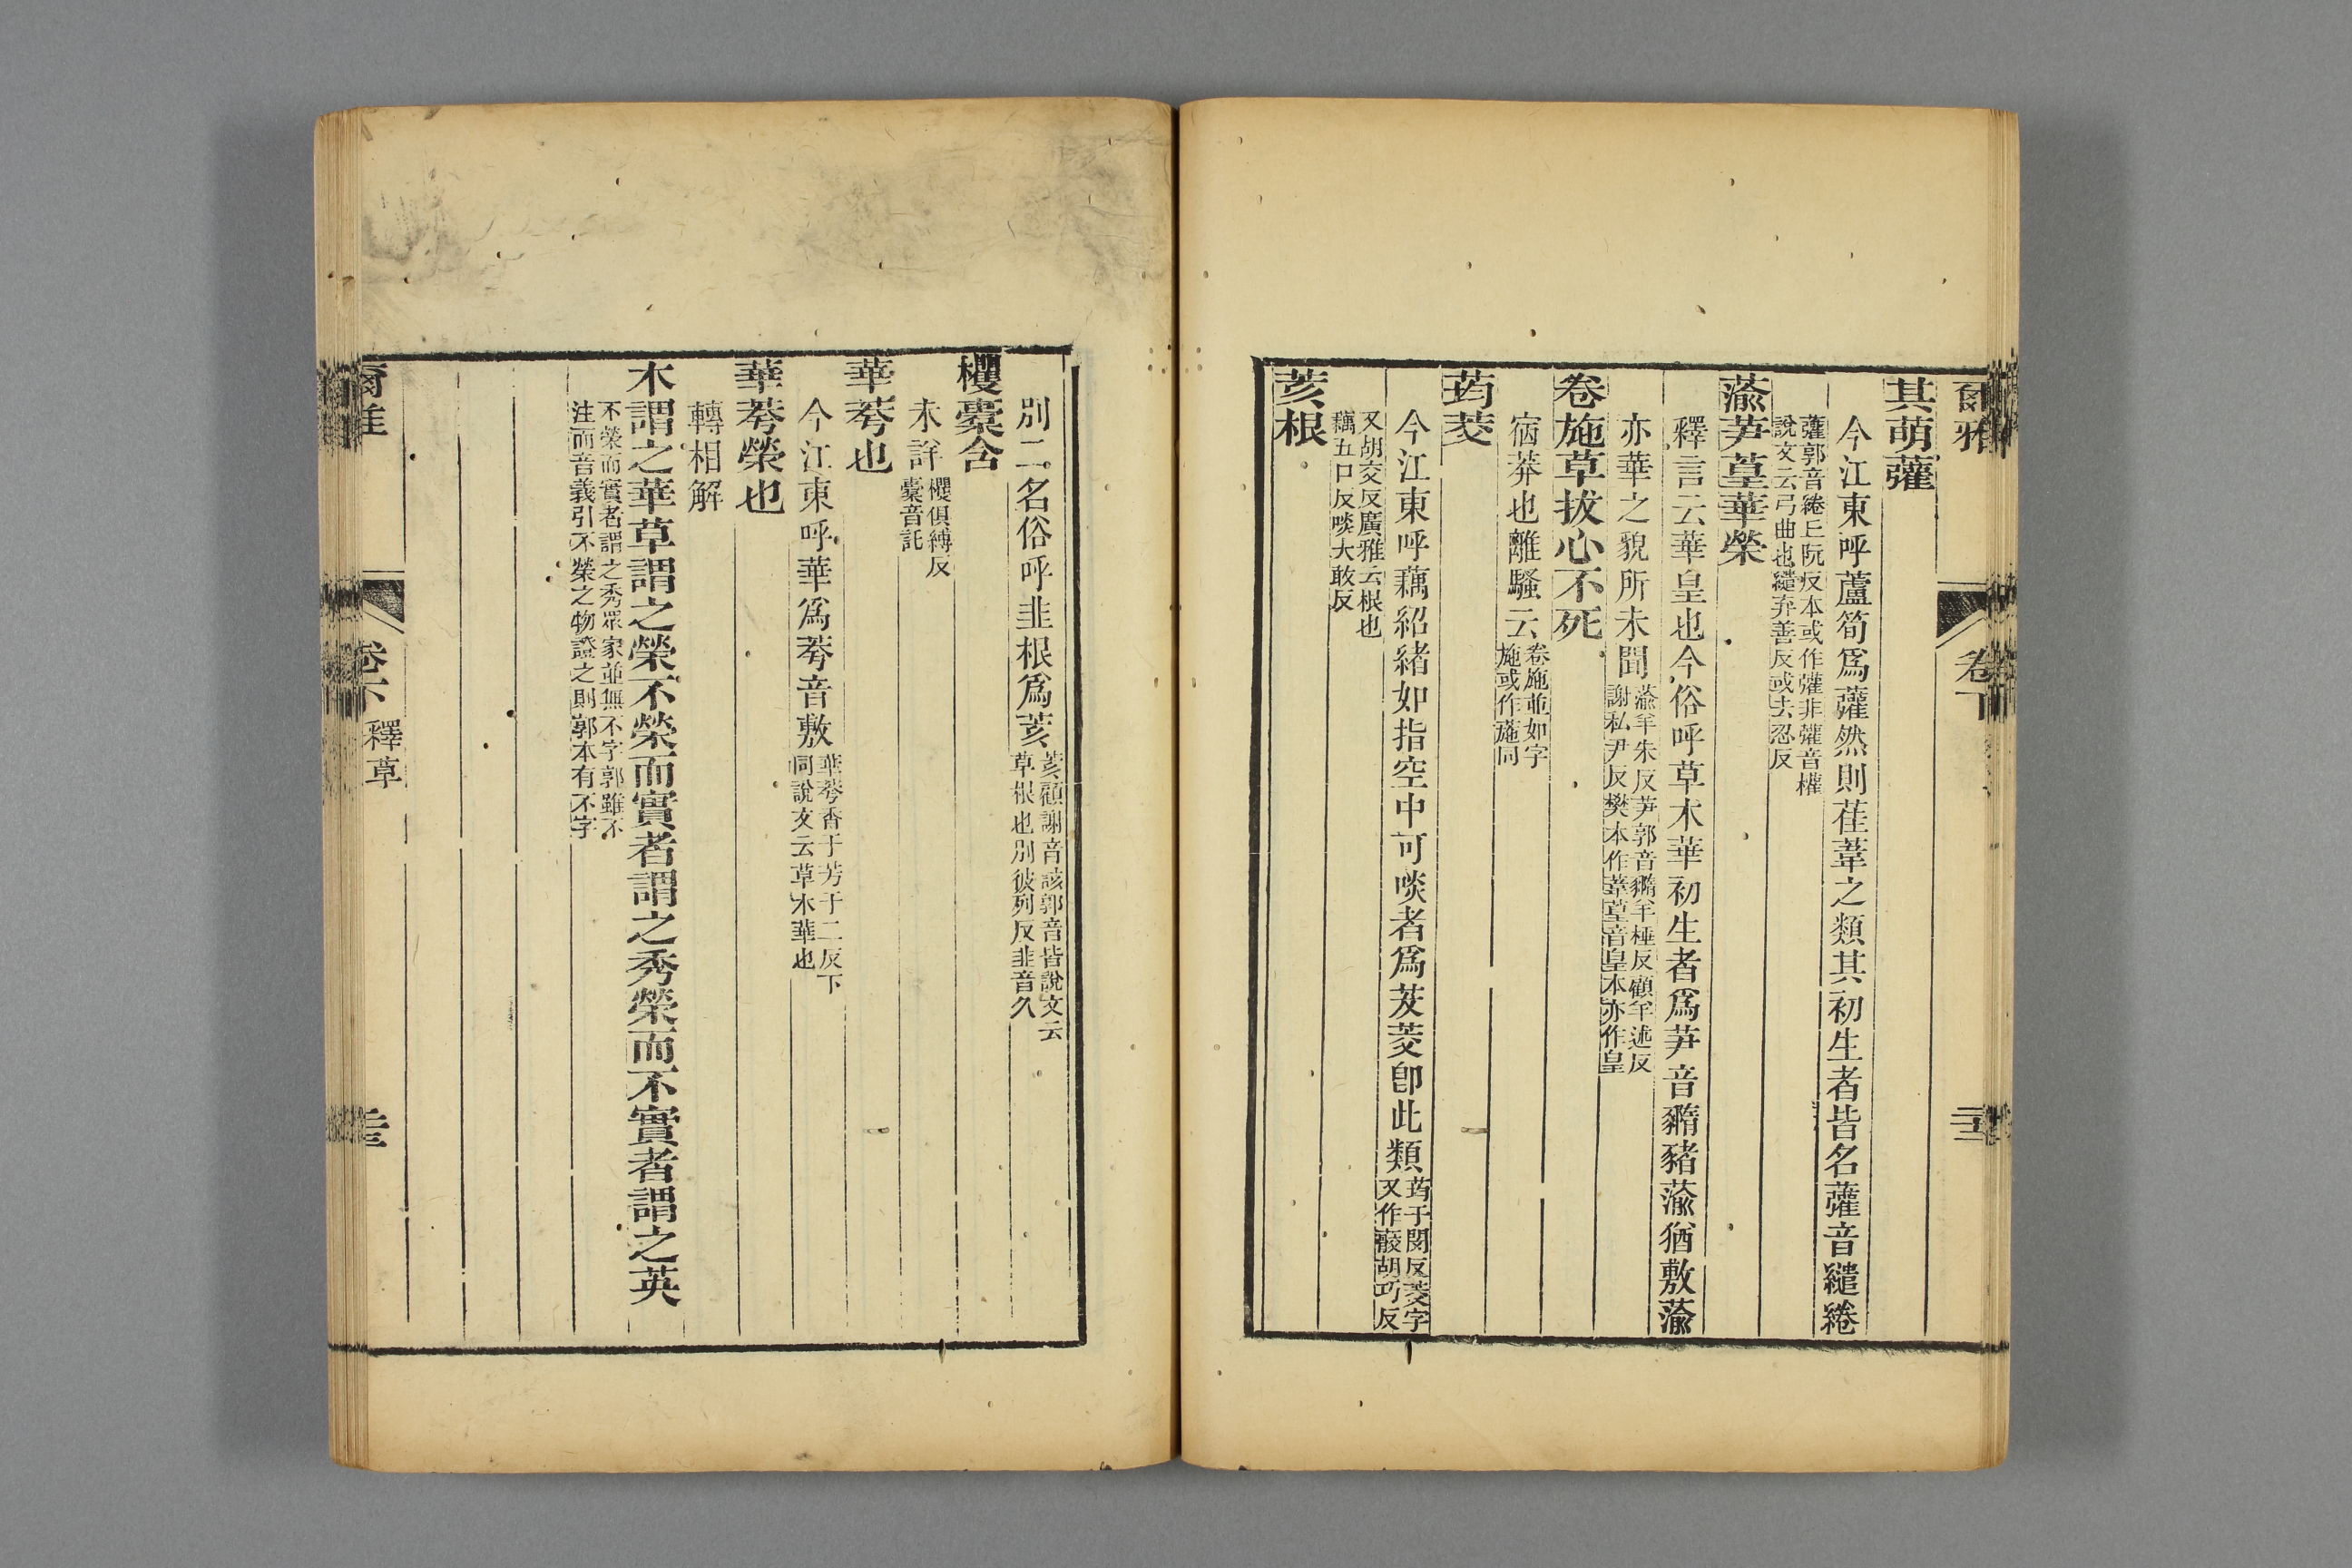 爾雅 卷下
其萌虇
今江東呼蘆筍爲虇然則萑葦之類其初生者皆名虇音繾綣
虇郭音綣丘阮反本或作虇非虇音權
說文云弓曲也繾弃善反或去忍反
蕍芛葟華榮
釋言云華皇也今俗呼草木華初生者爲芛音豬豬蕍猶敷蕍
亦華之貌所未聞
蕍羊朱反芛郭音豬羊棰反顧羊述反
謝私尹反樊本作葦葟音皇本亦作皇
卷施草拔心不死
宿莽也離騷云
卷施並如字
施或作葹同
荺茭
今江東呼藕紹緒如指空中可啖者爲茇茭即此類
荺于閔反茭字
又作䕧胡巧反
又胡交反廣雅云根也
藕五口反啖大敢反
荄根
別二名俗呼韭根爲荄
荄顧謝音該郭音皆說文云
草根也別彼列反韭音久
欔橐含
未詳
欔俱縛反
橐音託
華荂也
今江東呼華爲荂音敷
華荂香于芳于二反下
同說文云草木華也
華荂榮也
轉相解
木謂之華草謂之榮不榮而實者謂之秀榮而不實者謂之英
不榮而實者謂之秀眾家並無不字郭雖不
注而音義引不榮之物證之則郭本有不字
爾雅 卷下 釋草